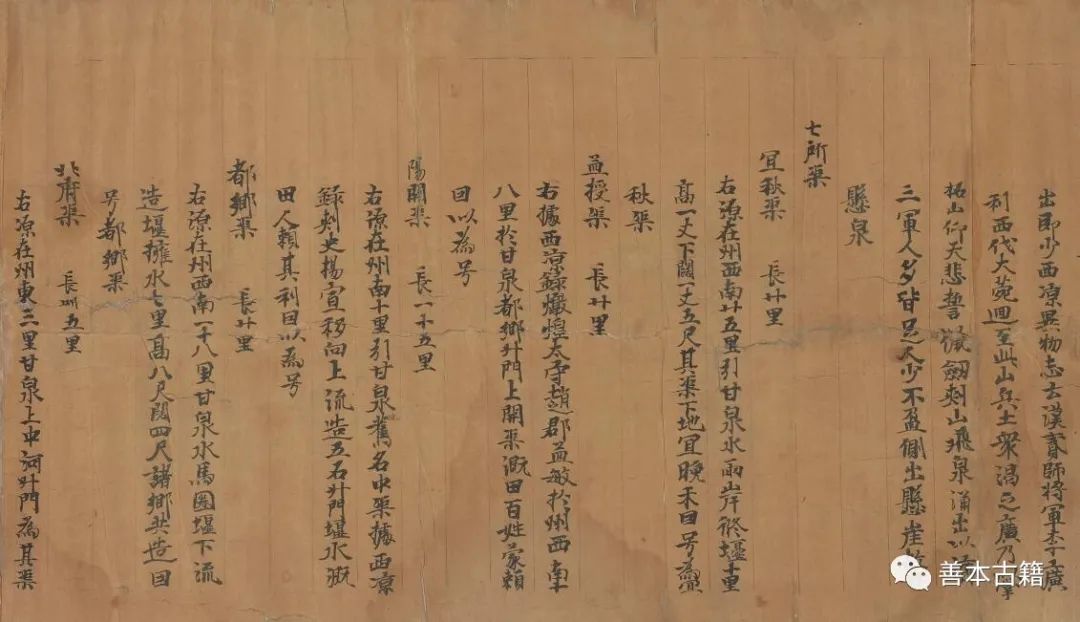 出即少西涼異物志云漢貳師將軍李廣
利西伐大菀迴至此山兵士衆渴乏廣乃
拓山仰天悲誓 劔刺山飛泉涌出以
三軍人多皆足人少不盈側出懸崖
懸泉
七所渠
宜秋渠 長廿里
右源在州西南廿五里引甘泉水兩岸修堰十里
高一丈下闊一丈五尺其渠下地宜晚禾因号為宜
秋渠
孟授渠 長廿里
右據西涼錄燉煌太守趙郡孟敏於州西南十
八里於甘泉都鄉斗門上開渠溉田百姓蒙賴
因以為号
陽開渠 長一十五里
右源在州南十里引甘泉舊名中渠據西涼
録刺史楊宣移向上流造五石斗門堰水溉
田人賴其利因以為号
都鄉渠 長廿里
右源在州西南一十八里甘泉水馬圈堰下流
造堰擁水七里高八尺闊四尺諸鄉共造因
号都鄉渠
北府渠 長卌五里
右源在州東三里甘泉上中河斗門為其渠
善本古籍